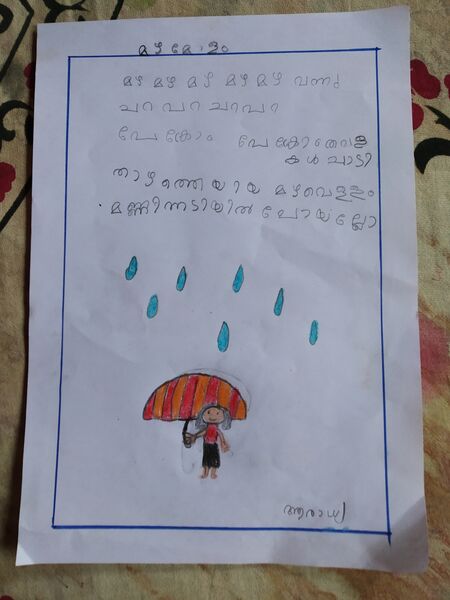 മഴമേളം
മഴ മഴ മഴ മഴ മഴ വന്നു
ചറ പറ ചറപറ
പേക്രോം പേക്രോം തവള
കൾ ചാടി
താഴത്തെയിയ മഴവെള്ളം
മണ്ണിന്നടിയിൽ പോയല്ലോ
ആരാധ്യ